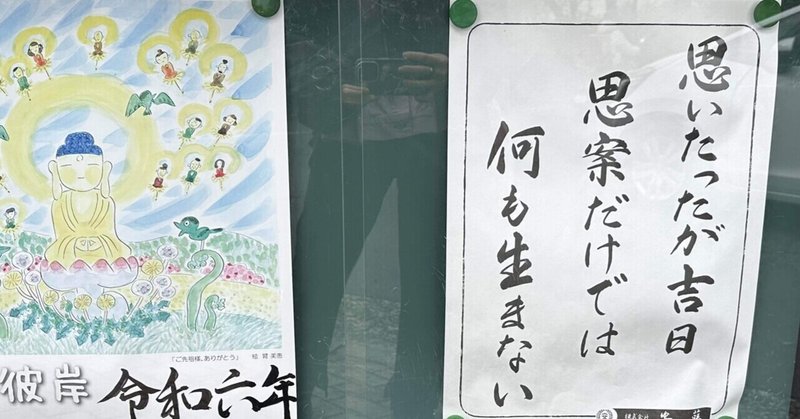 思いたったが吉日
思案だけでは
何も生まない
「ご先祖様、ありがとう」
彼岸
令和六年